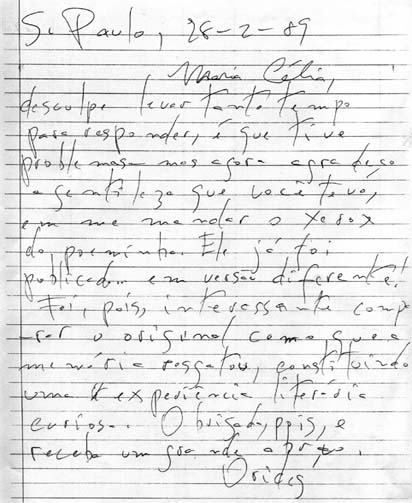 S. Paulo, 28-2-89
Maria Célia,
desculpe levar tanto tempo
para responder, é que tive
problemas - mas agora agradeço
a gentileza que você teve,
em me mandar o xerox
do poeminha. Ele já foi
publicado.. em versão diferente!
Foi, pois, interessante compa-
rar o original com o que a
memória resgatou, constituindo
uma experiência literária
curiosa.. Obrigada, pois, e
receba um grande apreço.
Orides